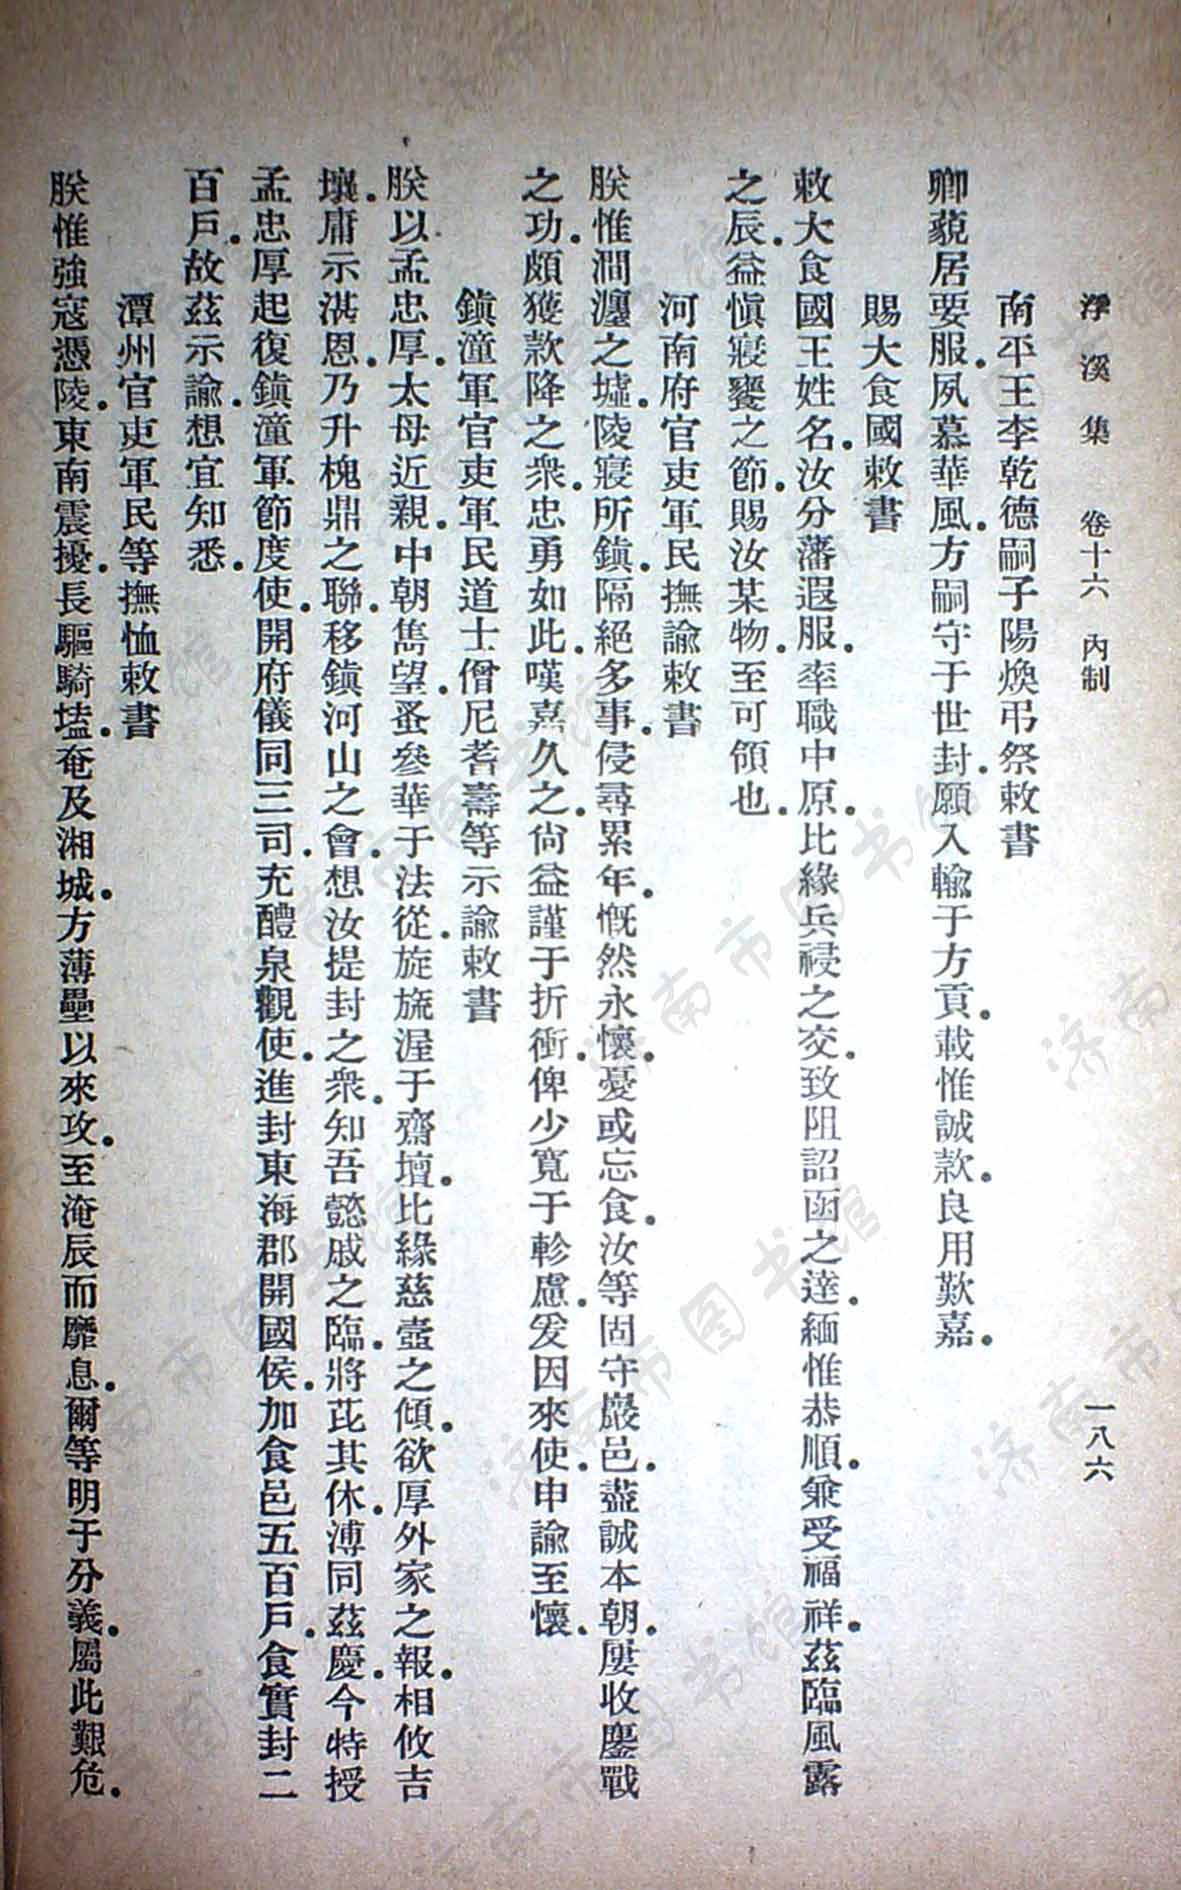 浮溪集 卷十六 內制 一八六
南平王李乾德嗣子陽煥弔祭敕書
卿藐居要服.夙慕華風.方嗣守于世封.願入輸于方貢.載惟誠款.良用歎嘉.
賜大食國敕書
敕大食國王姓名.汝分藩遐服.率職中原.比緣兵祲之交.致阻詔函之達.緬惟恭順.兼受福祥.茲臨風露
之辰.益愼寢饔之節.賜汝某物.至可領也.
河南府官吏軍民撫諭敕書
朕惟澗瀍之墟.陵寢所鎮.隔絕多事.侵尋累年.慨然永懷.憂或忘食.汝等固守巖邑.盡誠本朝.屢收鏖戰
之功.頗獲款降之衆.忠勇如此.嘆嘉久之.尙益謹于折衝.俾少寬于軫慮.爰因來使.申諭至懷.
鎮潼軍官吏軍民道士僧尼耆壽等示諭敕書
朕以孟忠厚.太母近親.中朝雋望.蚤參華于法從.旋旒渥于齋壇.比緣慈壼之傾.欲厚外家之報.相攸吉
壤.庸示湛恩.乃升槐鼎之聯.移鎮河山之會.想汝提封之衆.知吾懿戚之臨.將芘其休.溥同茲慶.今特授
孟忠厚起復鎮潼軍節度使.開府儀同三司.充醴泉觀使.進封東海郡開國侯.加食邑五百戶.食實封二
百戶.故茲示諭.想宜知悉.
潭州官吏軍民等撫恤敕書
朕惟強寇憑陵.東南震擾.長驅騎壒.奄及湘城.方薄壘以來攻.至淹辰而靡息.爾等明于分義.屬此艱危.
济南市图书馆